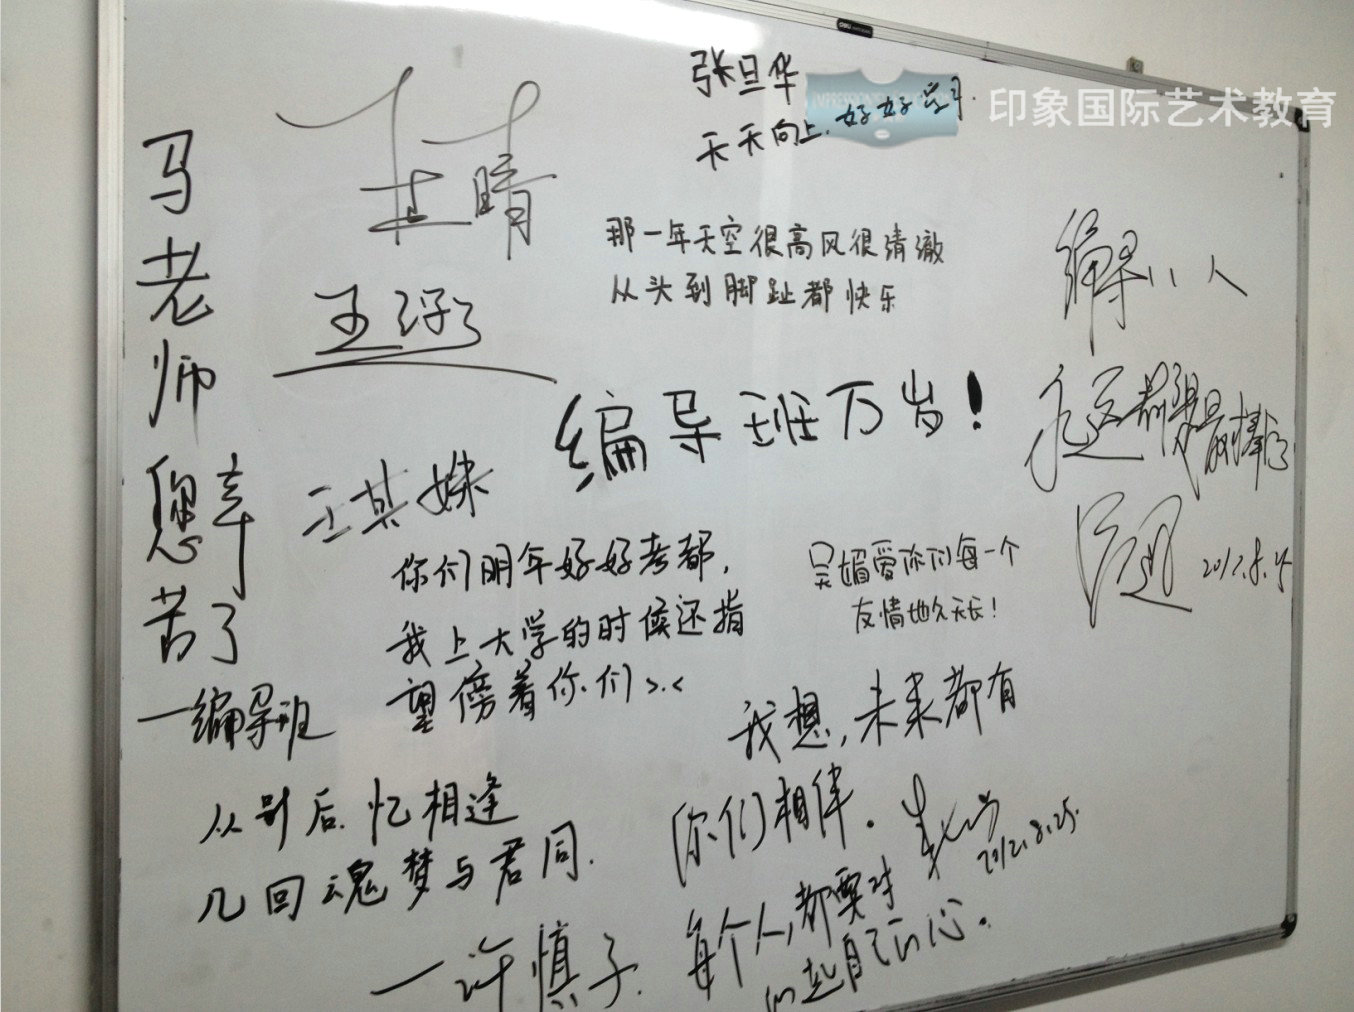 张旦华
天天向上.好好学习.
印象国际艺术教育
deli
马老师您辛苦了
一编导班
王晴
王
那一年天空很高风很清澈
从头到脚趾都快乐
编导八人
永远都是最棒的
2012.8.25
编导班万岁！
王其姝
你们明年好好考都，
我上大学的时候还指
望傍着你们>.<
吴媚爱你们每一个
友情地久天长！
我想，未来都有
你们相伴．
2012.8.25.
从别后.忆相逢
几回魂梦与君同．
一许慎子
每个人,都要对
的起自己的心．